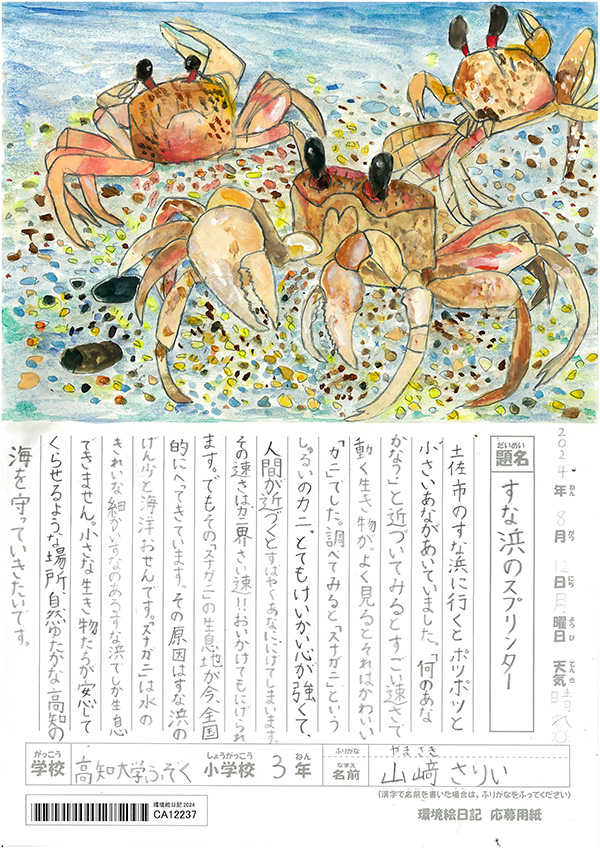 2024年ねん 8月がつ 12日にち 月曜日ようび 天気てんき 晴れ
だいめい
題名 すな浜のスプリンター
土佐市のすな浜に行くとポツポツと
小さいあながあいていました。「何のあな
かな?」と近づいてみるとすごい速さで
動く生き物が。よく見るとそれはかわいい
「カニ」でした。調べてみると「スナガニ」という
しゅるいのカニ、とてもけいかい心が強くて、
人間が近づくとすばやくあなににげてしまいます。
その速さはカニ界さい速!!おいかけてもにげられ
ます。でもその「スナガニ」の生息地が今、全国
的にへってきています。その原因はすな浜の
げん少と海洋おせんです。「スナガニ」は水の
きれいな細かいすなのあるすな浜でしか生息
できません。小さな生き物たちが安心して
くらせるような場所、自然ゆたかな高知の
海を守っていきたいです。
がっこう しょうがっこう ねん ふりがな やまさき
学校 高知大学ふぞく 小学校 3年 なまえ 名前 山﨑さりい
(漢字で名前を書いた場合は、ふりがなをふってください)
環境絵日記2024
CA12237
環境絵日記 応募用紙